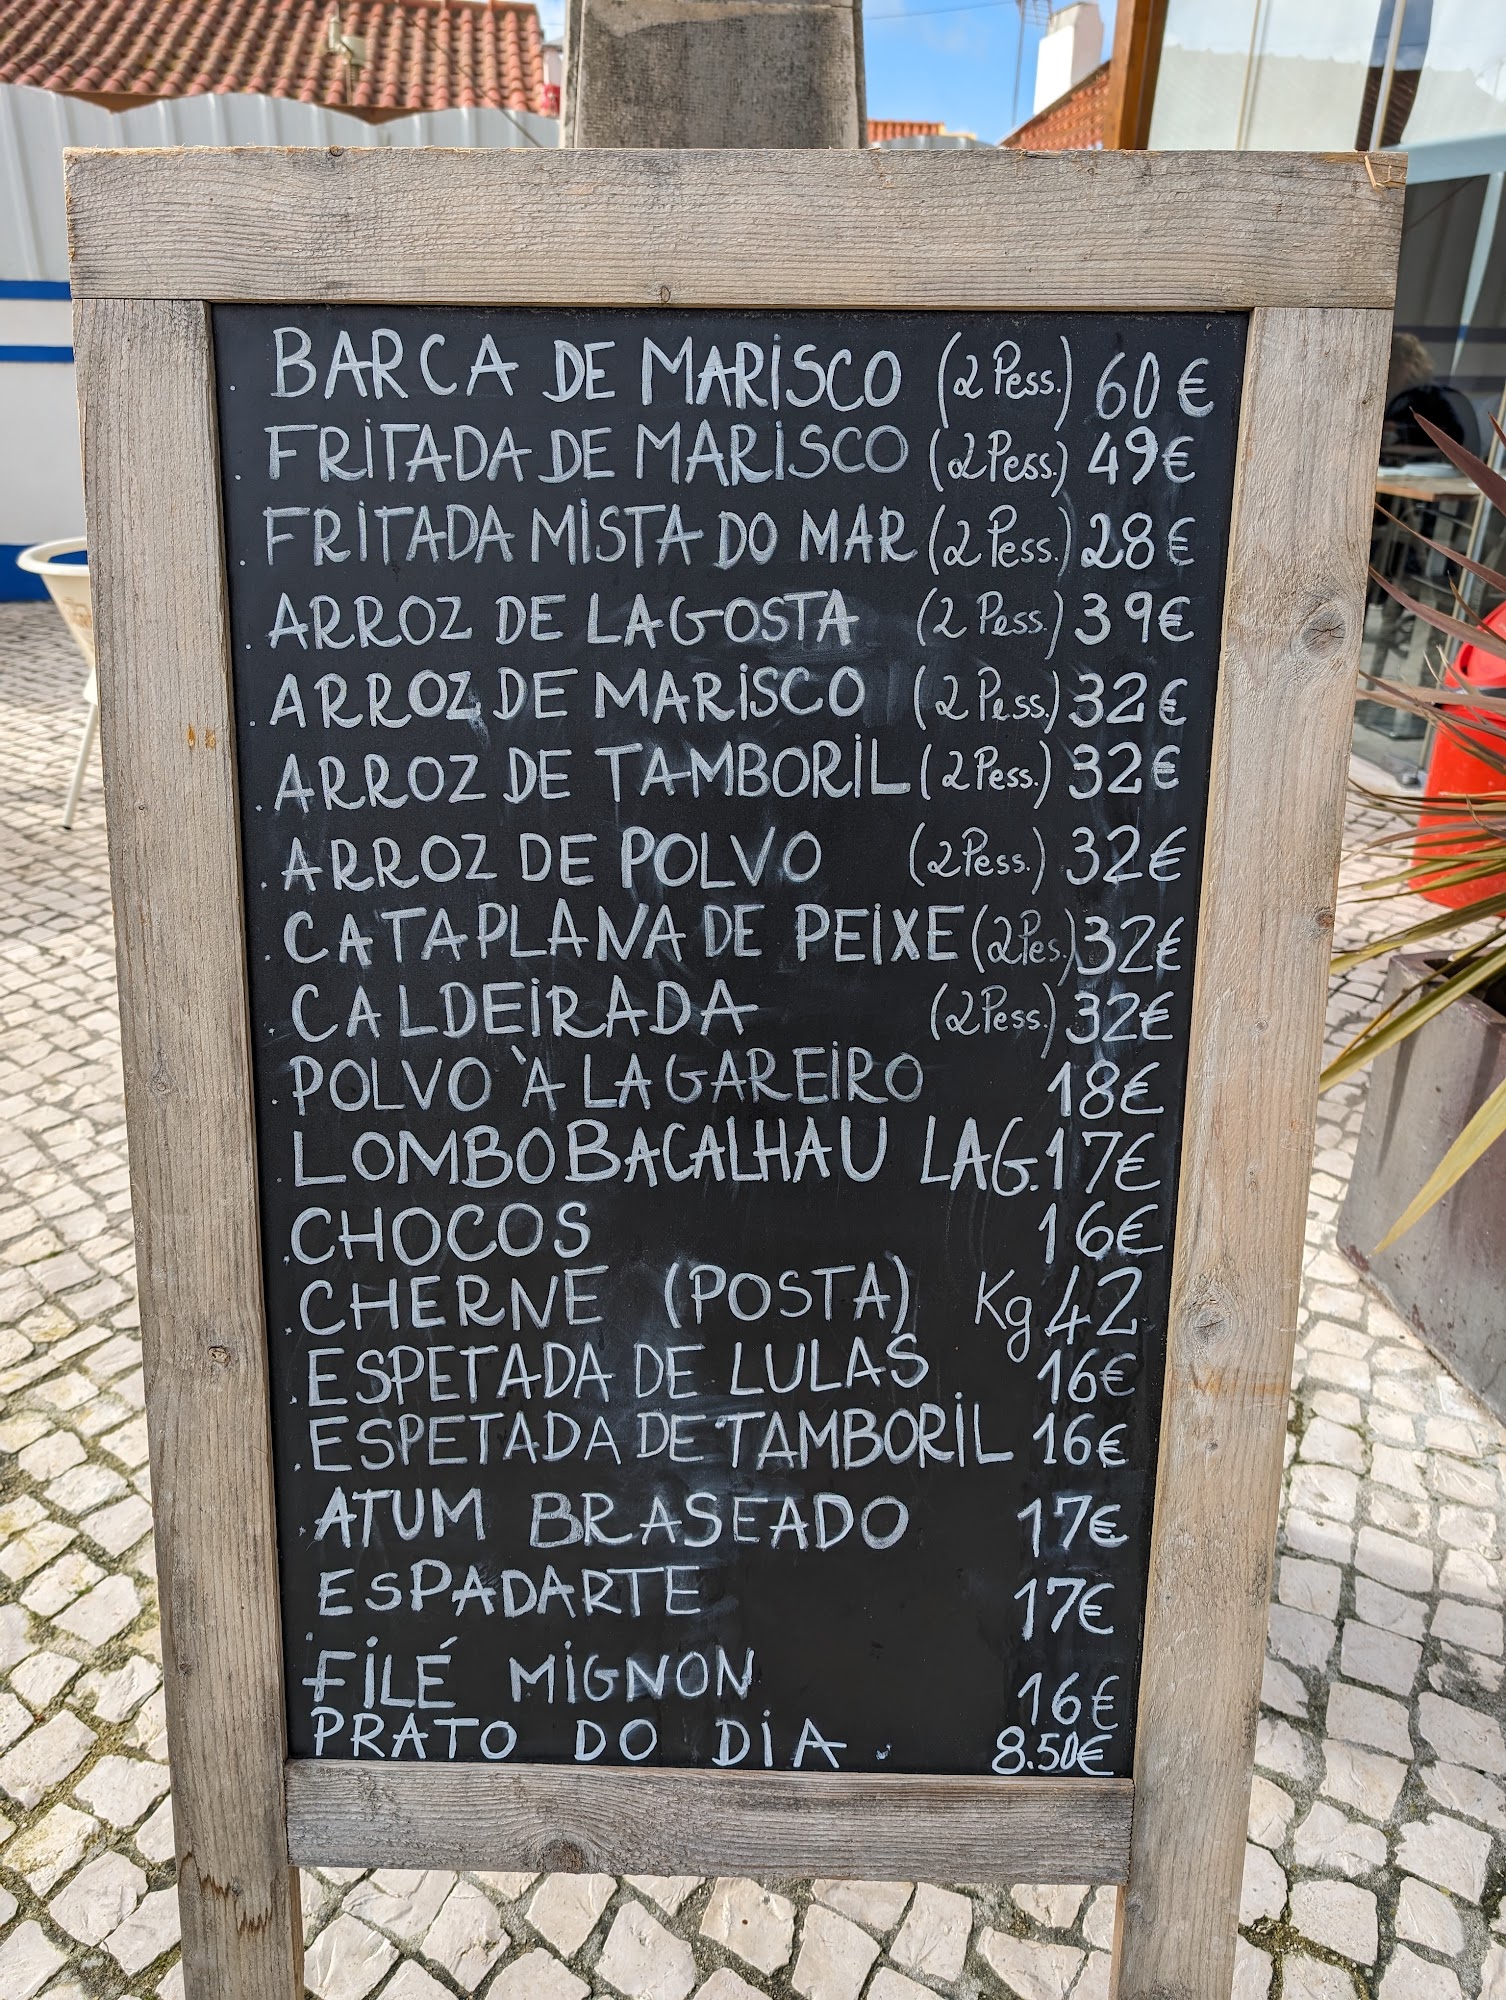 . BARCA DE MARISCO (2 Pess.) 60€
. FRITADA DE MARISCO (2 Pess.) 49€
. FRITADA MISTA DO MAR (2 Pess.) 28€
. ARROZ DE LAGOSTA (2 Pess.) 39€
. ARROZ DE MARISCO (2 Pess.) 32€
. ARROZ DE TAMBORIL (2 Pess.) 32€
. ARROZ DE POLVO (2 Pess.) 32€
. CATAPLANA DE PEIXE (2 Pes.) 32€
. CALDEIRADA (2 Pess.) 32€
. POLVO À LAGAREIRO 18€
. LOMBO BACALHAU LAG. 17€
. CHOCOS 16€
. CHERNE (POSTA) Kg 42
. ESPETADA DE LULAS 16€
. ESPETADA DE TAMBORIL 16€
. ATUM BRASEADO 17€
. ESPADARTE 17€
. FILÉ MIGNON 16€
PRATO DO DIA . 8.50€